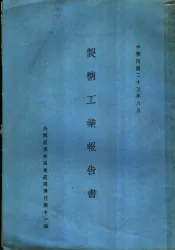 中華民國二十五年六月
製糖工業報告書
全國經濟委員會經濟專刊第十一種